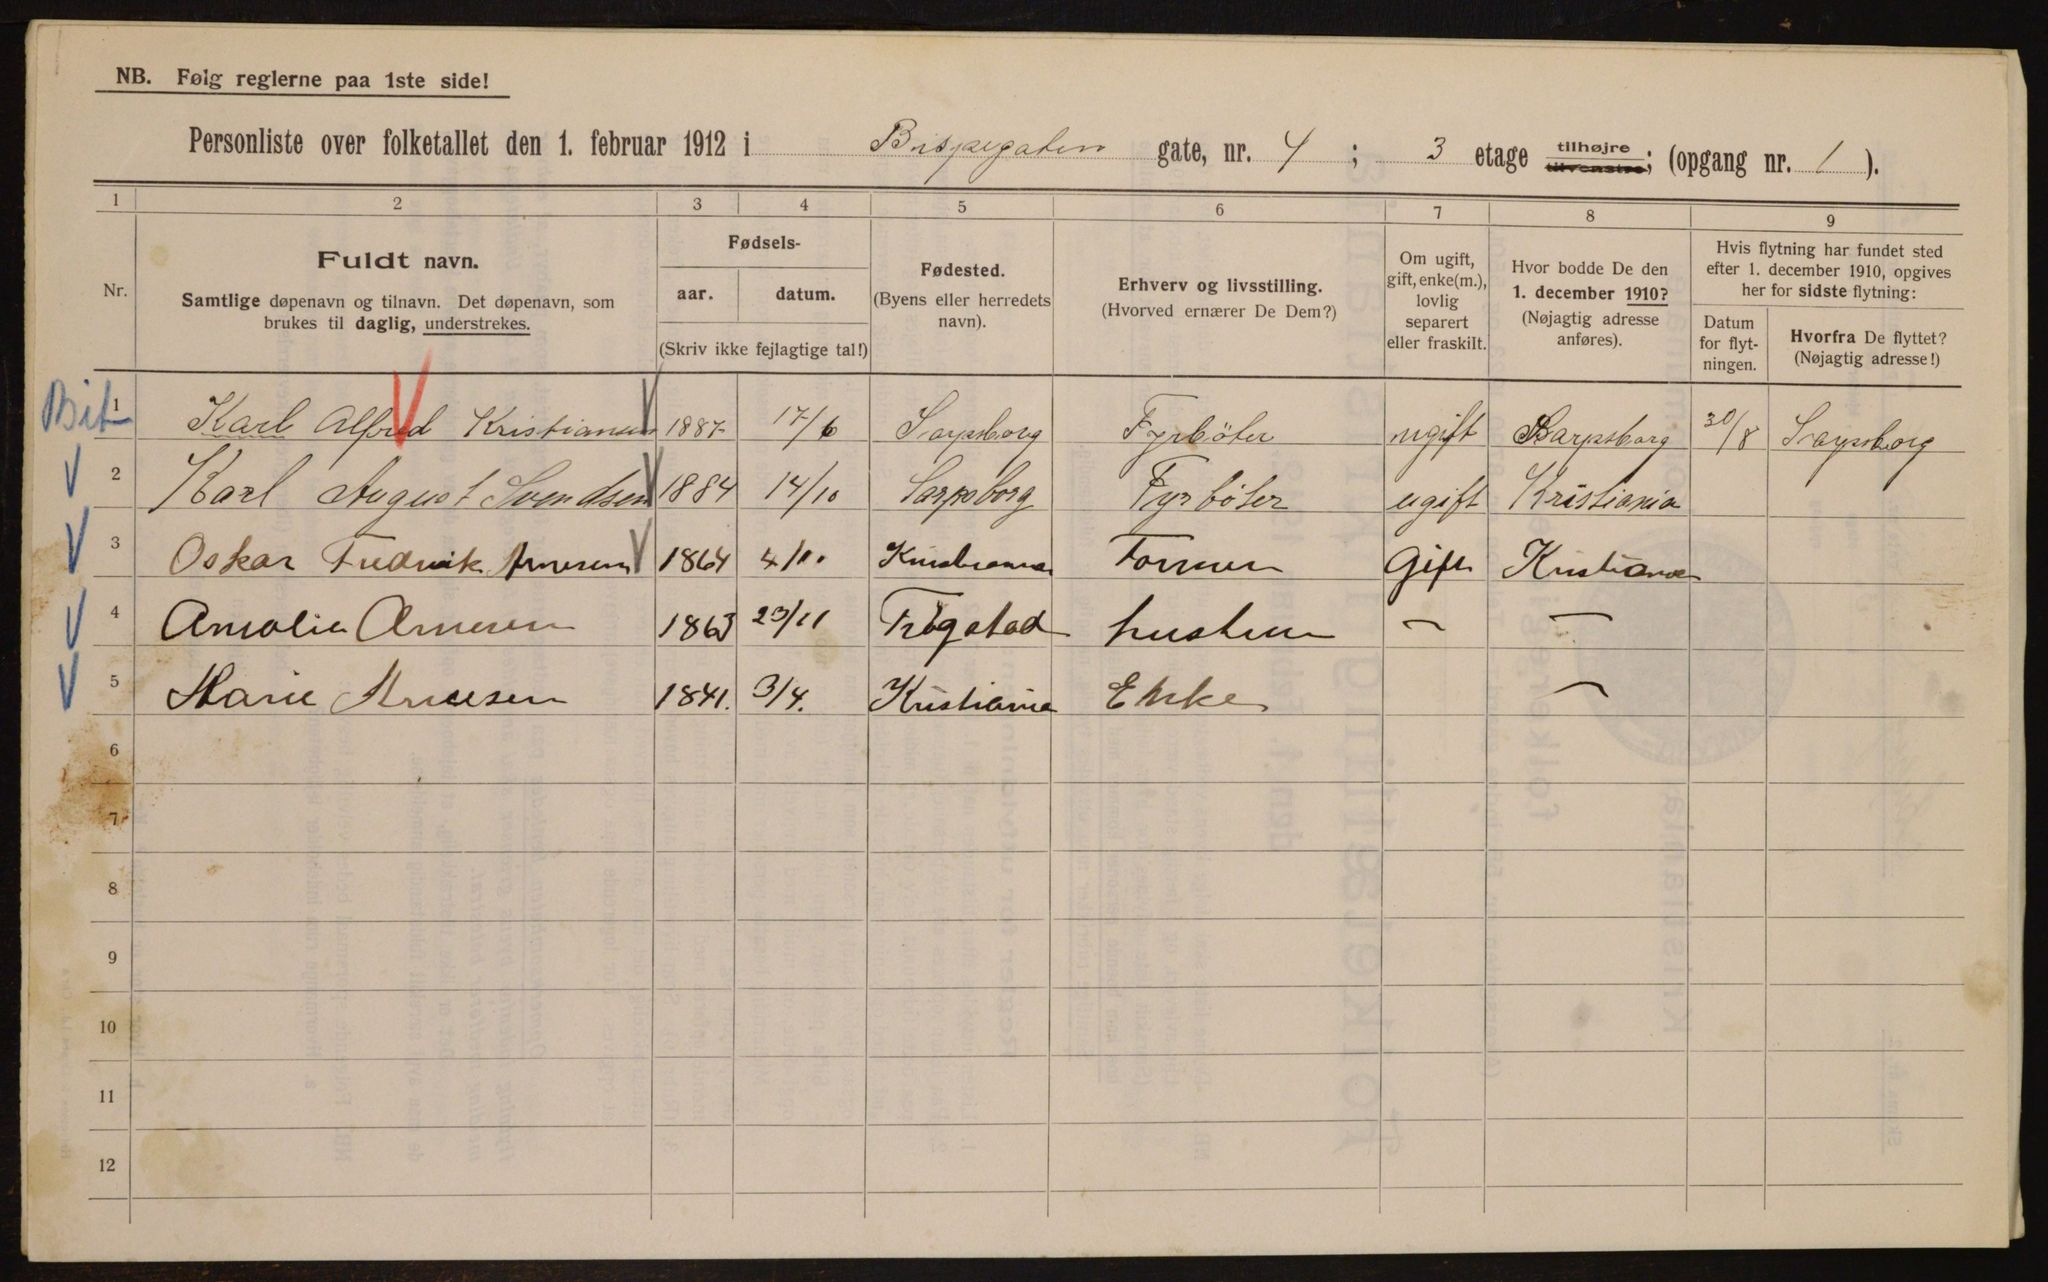 NB. Følg reglerne paa 1ste side!
Personliste over folketallet den 1. februar 1912 i Bispegaten gate, nr. 4 ; 3 etage tilhøjre tilvenstre; (opgang nr. 1 ).
1 2 3 4 5 6 7 8 9
Nr.
Fuldt navn.
Samtlige døpenavn og tilnavn. Det døpenavn, som
brukes til daglig, understrekes.
Fødsels-
aar. datum.
(Skriv ikke fejlagtige tal!)
Fødested.
(Byens eller herredets
navn).
Erhverv og livsstilling.
(Hvorved ernærer De Dem?)
Om ugift,
gift, enke(m.),
lovlig
separert
eller fraskilt.
Hvor bodde De den
1. december 1910?
(Nøjagtig adresse
anføres).
Hvis flytning har fundet sted
efter 1. december 1910, opgives
her for sidste flytning:
Datum
for flyt-
ningen.
Hvorfra De flyttet?
(Nøjagtig adresse!)
1 Karl Alfred Kristiansen 1887 17/6 Sarpsborg Fyrbøter ugift Sarpsborg 30/8 Sarpsborg
2 Karl August Svendsen 1884 14/10 Sarpsborg Fyrbøter ugift Kristiania
3 Oskar Fredrik Arnesen 1864 4/10. Kristiania Former Gift Kristiania
4 Amalie Arnesen 1863 23/11 Trøgstad hustru — —
5 Marie Arnesen 1841. 3/4. Kristiania Enke —
6
7
8
9
10
11
12